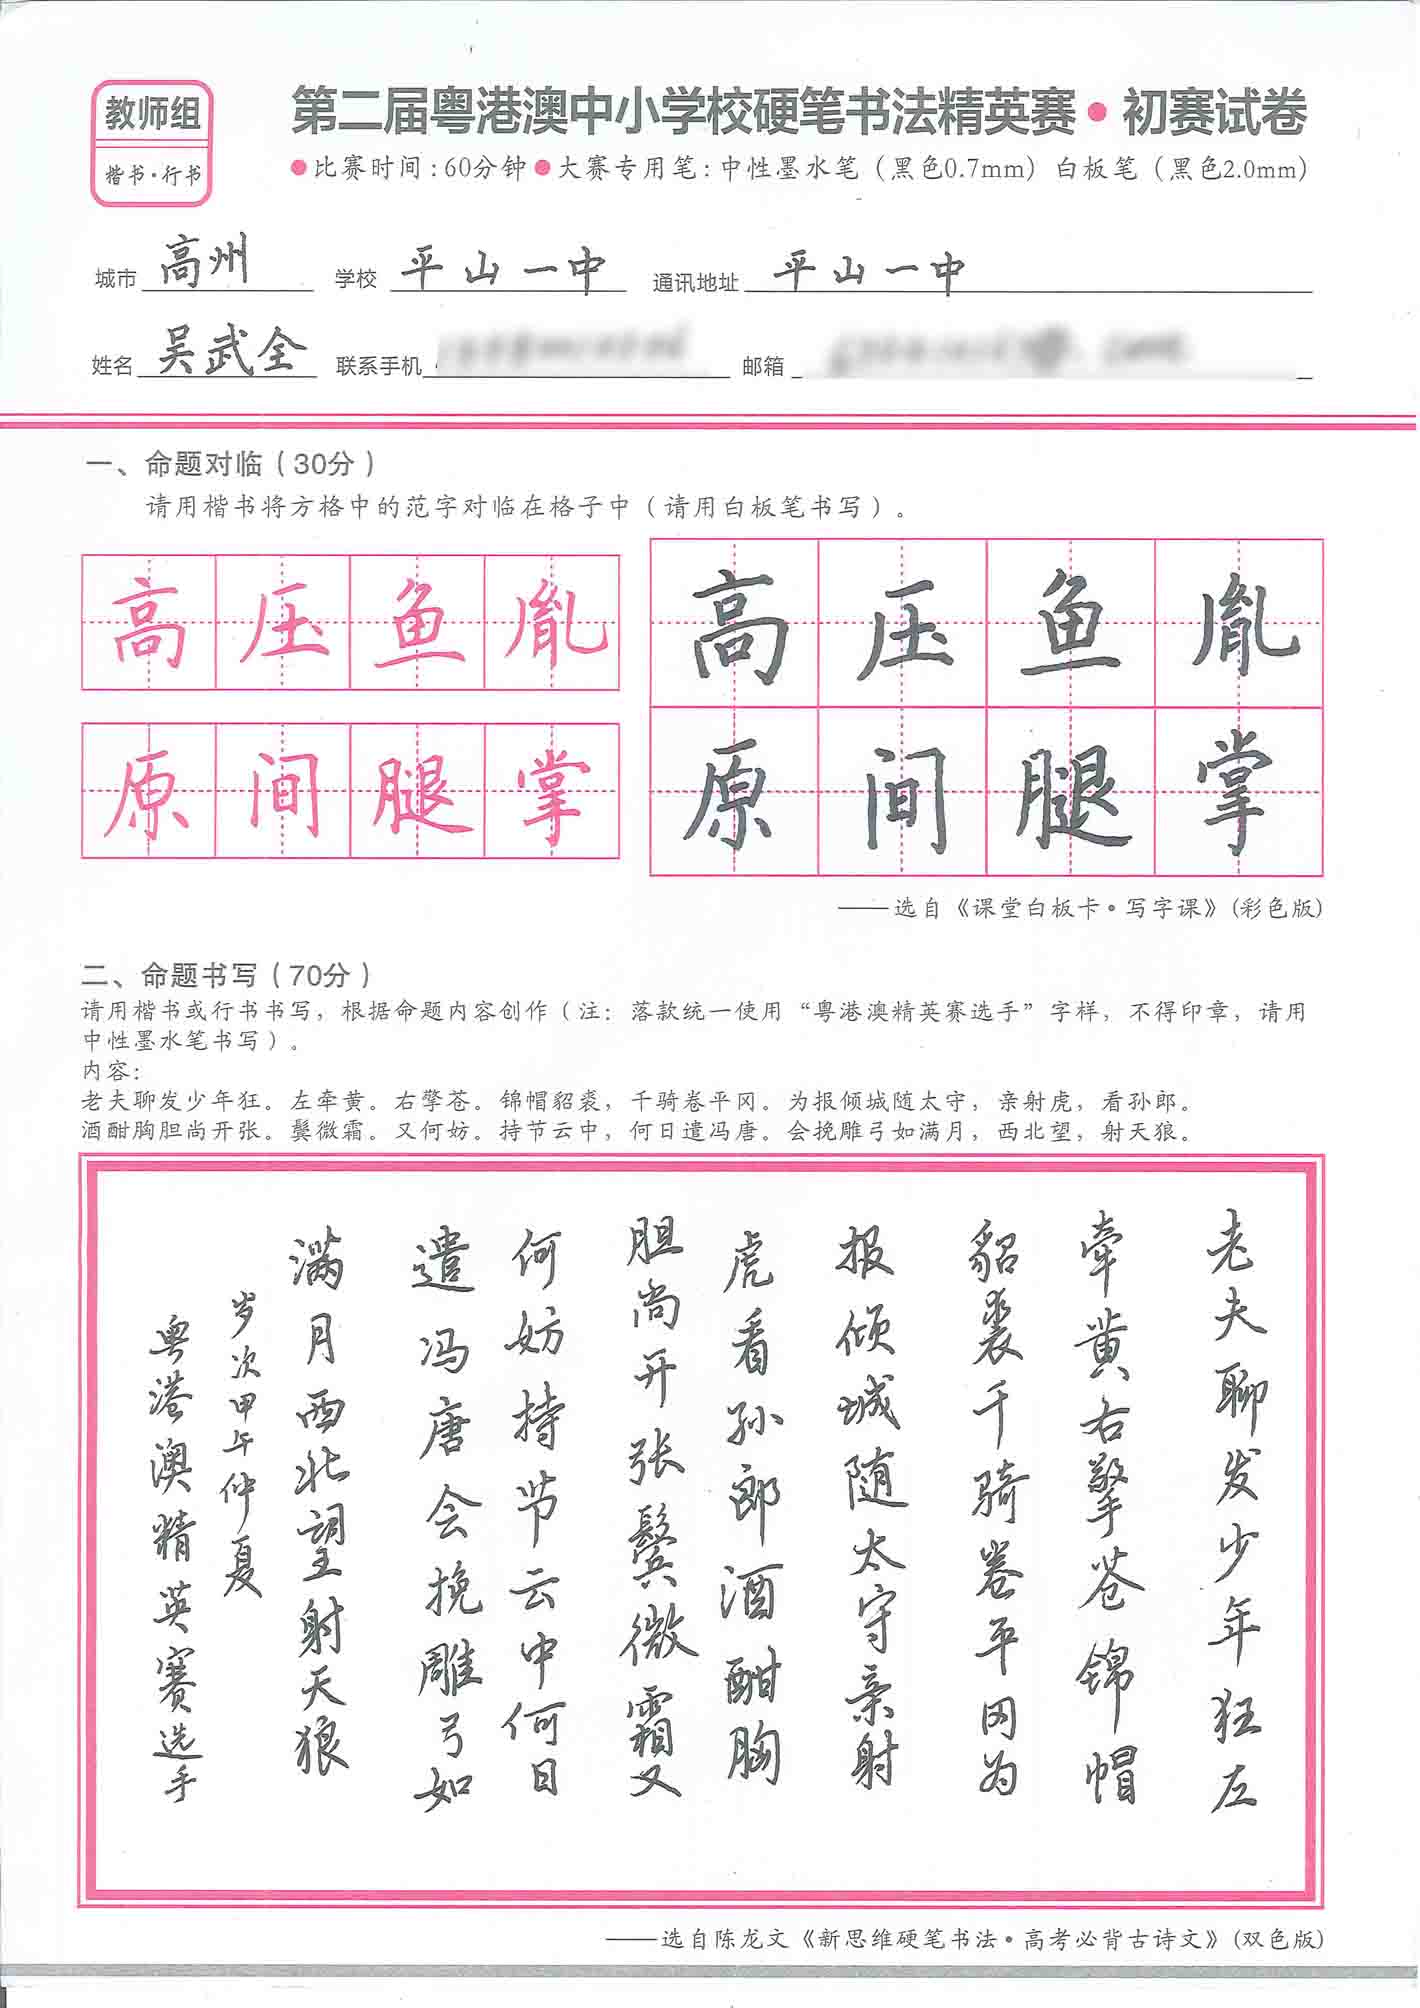 教师组
楷书·行书
第二届粤港澳中小学校硬笔书法精英赛·初赛试卷
●比赛时间:60分钟●大赛专用笔:中性墨水笔（黑色0.7mm）白板笔（黑色2.0mm）
城市 高州 学校 平山一中 通讯地址 平山一中
姓名 吴武全 联系手机 邮箱
一、命题对临（30分）
请用楷书将方格中的范字对临在格子中（请用白板笔书写）。
高压鱼胤
原间腿掌
高压鱼胤
原间腿掌
——选自《课堂白板卡·写字课》(彩色版)
二、命题书写（70分）
请用楷书或行书书写，根据命题内容创作（注：落款统一使用“粤港澳精英赛选手”字样，不得印章，请用
中性墨水笔书写）。
内容：
老夫聊发少年狂。左牵黄。右擎苍。锦帽貂裘，千骑卷平冈。为报倾城随太守，亲射虎，看孙郎。
酒酣胸胆尚开张。鬓微霜。又何妨。持节云中，何日遣冯唐。会挽雕弓如满月，西北望，射天狼。
老夫聊发少年狂左
牵黄右擎苍锦帽
貂裘千骑卷平冈为
报倾城随太守亲射
虎看孙郎酒酣胸
胆尚开张鬓微霜又
何妨持节云中何日
遣冯唐会挽雕弓如
满月西北望射天狼
岁次甲午仲夏
粤港澳精英赛选手
——选自陈龙文《新思维硬笔书法·高考必背古诗文》(双色版)